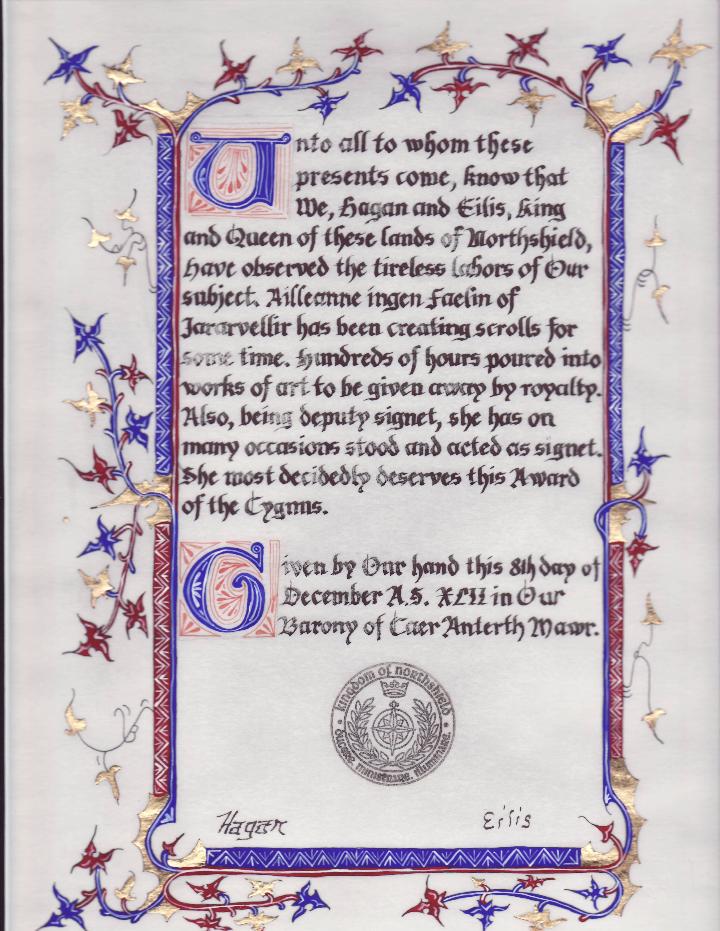 Unto all to whom these
presents come, know that
We, Hagan and Eilis, King
and Queen of these lands of Northshield,
Have observed the tireless labors of Our
subject. Ailleanne ingen Faelin of
Jararvellir has been creating scrolls for
some time. Hundreds of hours poured into
works of art to be given away by royalty.
Also, being deputy signet, she has on
many occasions stood and acted as signet.
She most decidedly deserves this Award
of the Cygnus.
Given by Our hand this 8th day of
December A.S. XLII in Our
Barony of Caer Anterth Mawr.
kingdom of northshield
ducere. ministrare. illuminare.
Hagan
Eilis